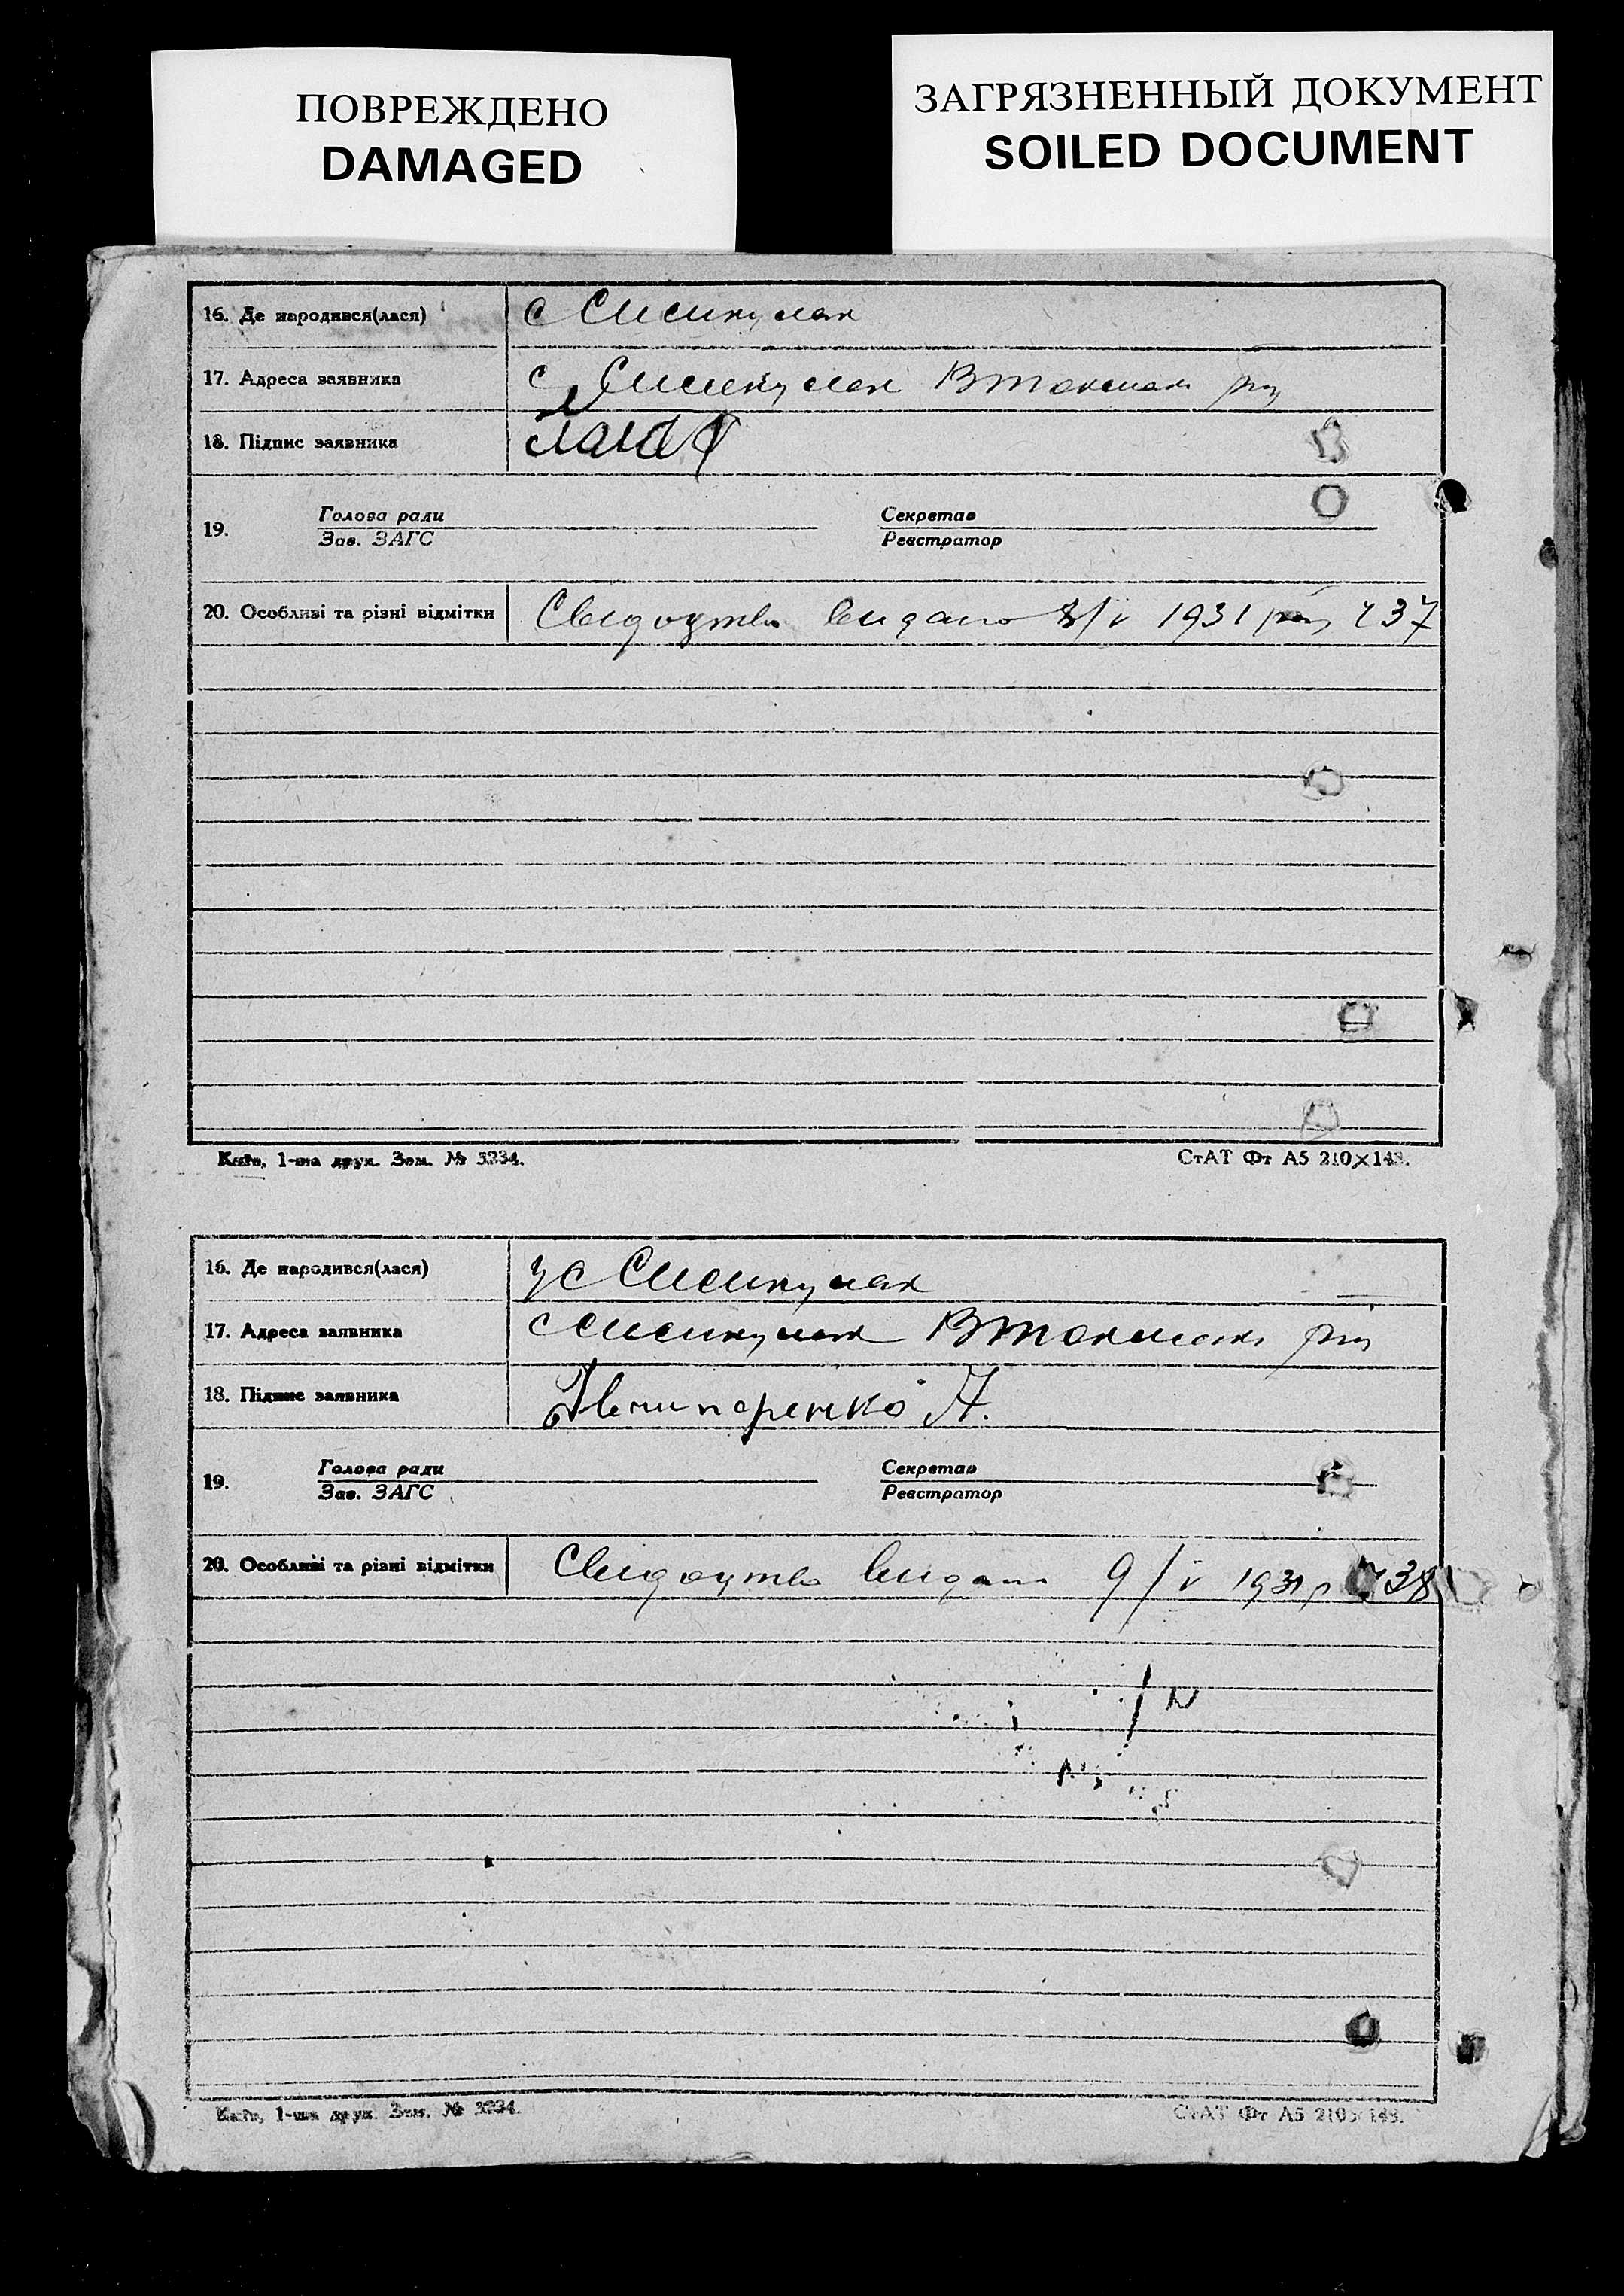 ПОВРЕЖДЕНО
DAMAGED
ЗАГРЯЗНЕННЫЙ ДОКУМЕНТ
SOILED DOCUMENT
16. Де народився(лася) с
17. Адреса заявника с ВТокмак
18. Підпис заявника
19. Голова ради Секретар
Зав. ЗАГС Реєстратор
20. Особливі та різні відмітки Свидоцтво видано /V 1931 ч 37
Київ, 1-ша друк. Зам. № 3234.
СтАТ Фт А5 210×148.
16. Де народився(лася) у с
17. Адреса заявника с ВТокмак
18. Підпис заявника А.
19. Голова ради Секретар
Зав. ЗАГС Реєстратор
20. Особливі та різні відмітки Свидоцтво видано 9/V 1931 р ч 38
Київ, 1-ша друк. Зам. № 3234.
СтАТ Фт А5 210×148.